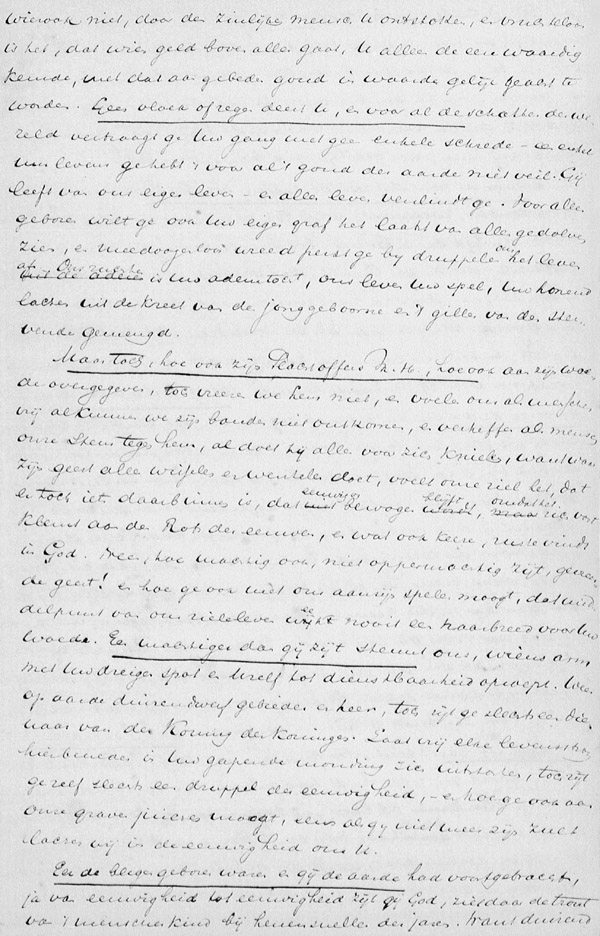 wierook niet, door den zinlijken mensch U ontstoken, en vruchteloos
is het, dat wien geld boven alles gaat, U alleen de eer waardig
keurde, met dat aangebeden goud in waarde gelijk geacht te
worden. Geen vloek of zegen deert U, en voor al de schatten der we-
reld vertraagt ge Uw gang met geen enkele schrede – een enkel
uur levens ge hebt 't voor al 't goud der aarde niet veil. Gij
leeft van ons eigen leven – en alle leven verslindt ge. Voor alle
geboren wilt ge ook Uw eigen graf het laatst van alle gedolven
zien, en meedoogenloos wreed perst ge bij druppelen ons het leven
af. Onze is Uw ademtocht, ons leven Uw spel, Uw honend
lachen uit de kreet van de jonggeboorne en 't gillen van de ster-
vende gemengd.
Maar toch, hoe ook zijn slachtoffers M. H., hoe ook aan zijn woe-
de overgegeven, toch vreezen we hem niet, en voelen ons als menschen
vrij al kunnen we zijn banden niet ontkomen, en verheffen als menschen
onze stem tegen hem, al doet hij alles voor zich knielen, want waar
zijn geest alle twijfelen en wankelen doet, voelt onze ziel het, dat
er toch iets daarbinnen is, dat onbewogen blijft, omdat het zich vast
klemt aan de Rots der eeuwen, en wat ook keere, ruste vindt
in God. Neen, hoe machtig ook, niet oppermachtig zijt, gevree-
de geest! en hoe ge ook met ons aanzijn spelen moogt, dat mid-
delpunt van ons zieleleven wijkt nooit een haarbreed voor Uw
woede. Een machtiger dan gij zijt steunt ons, wiens arm
met Uw dreigen spot en Uzelf tot dienstbaarheid oproept. Wee
op aarde duizendwerf gebieder en heer, toch zijt ge slechts een die-
naar van den Koning der Koningen. Laat vrij elke levensstroom
hierbeneden in Uw gapende monding zich uitstorten, toch zijt
ge zelf slechts een druppel der eeuwigheid, – en hoe ge ook aan
onze graven juichen moogt, eens als gij niet meer zijn zult
lachen wij in de eeuwigheid om U.
Eer de bergen geboren waren en gij de aarde had voortgebracht,
ja van eeuwigheid tot eeuwigheid zijt gij God, ziedaar de troost
van 't menschenkind bij 't henensnellen der jaren. Want duizend